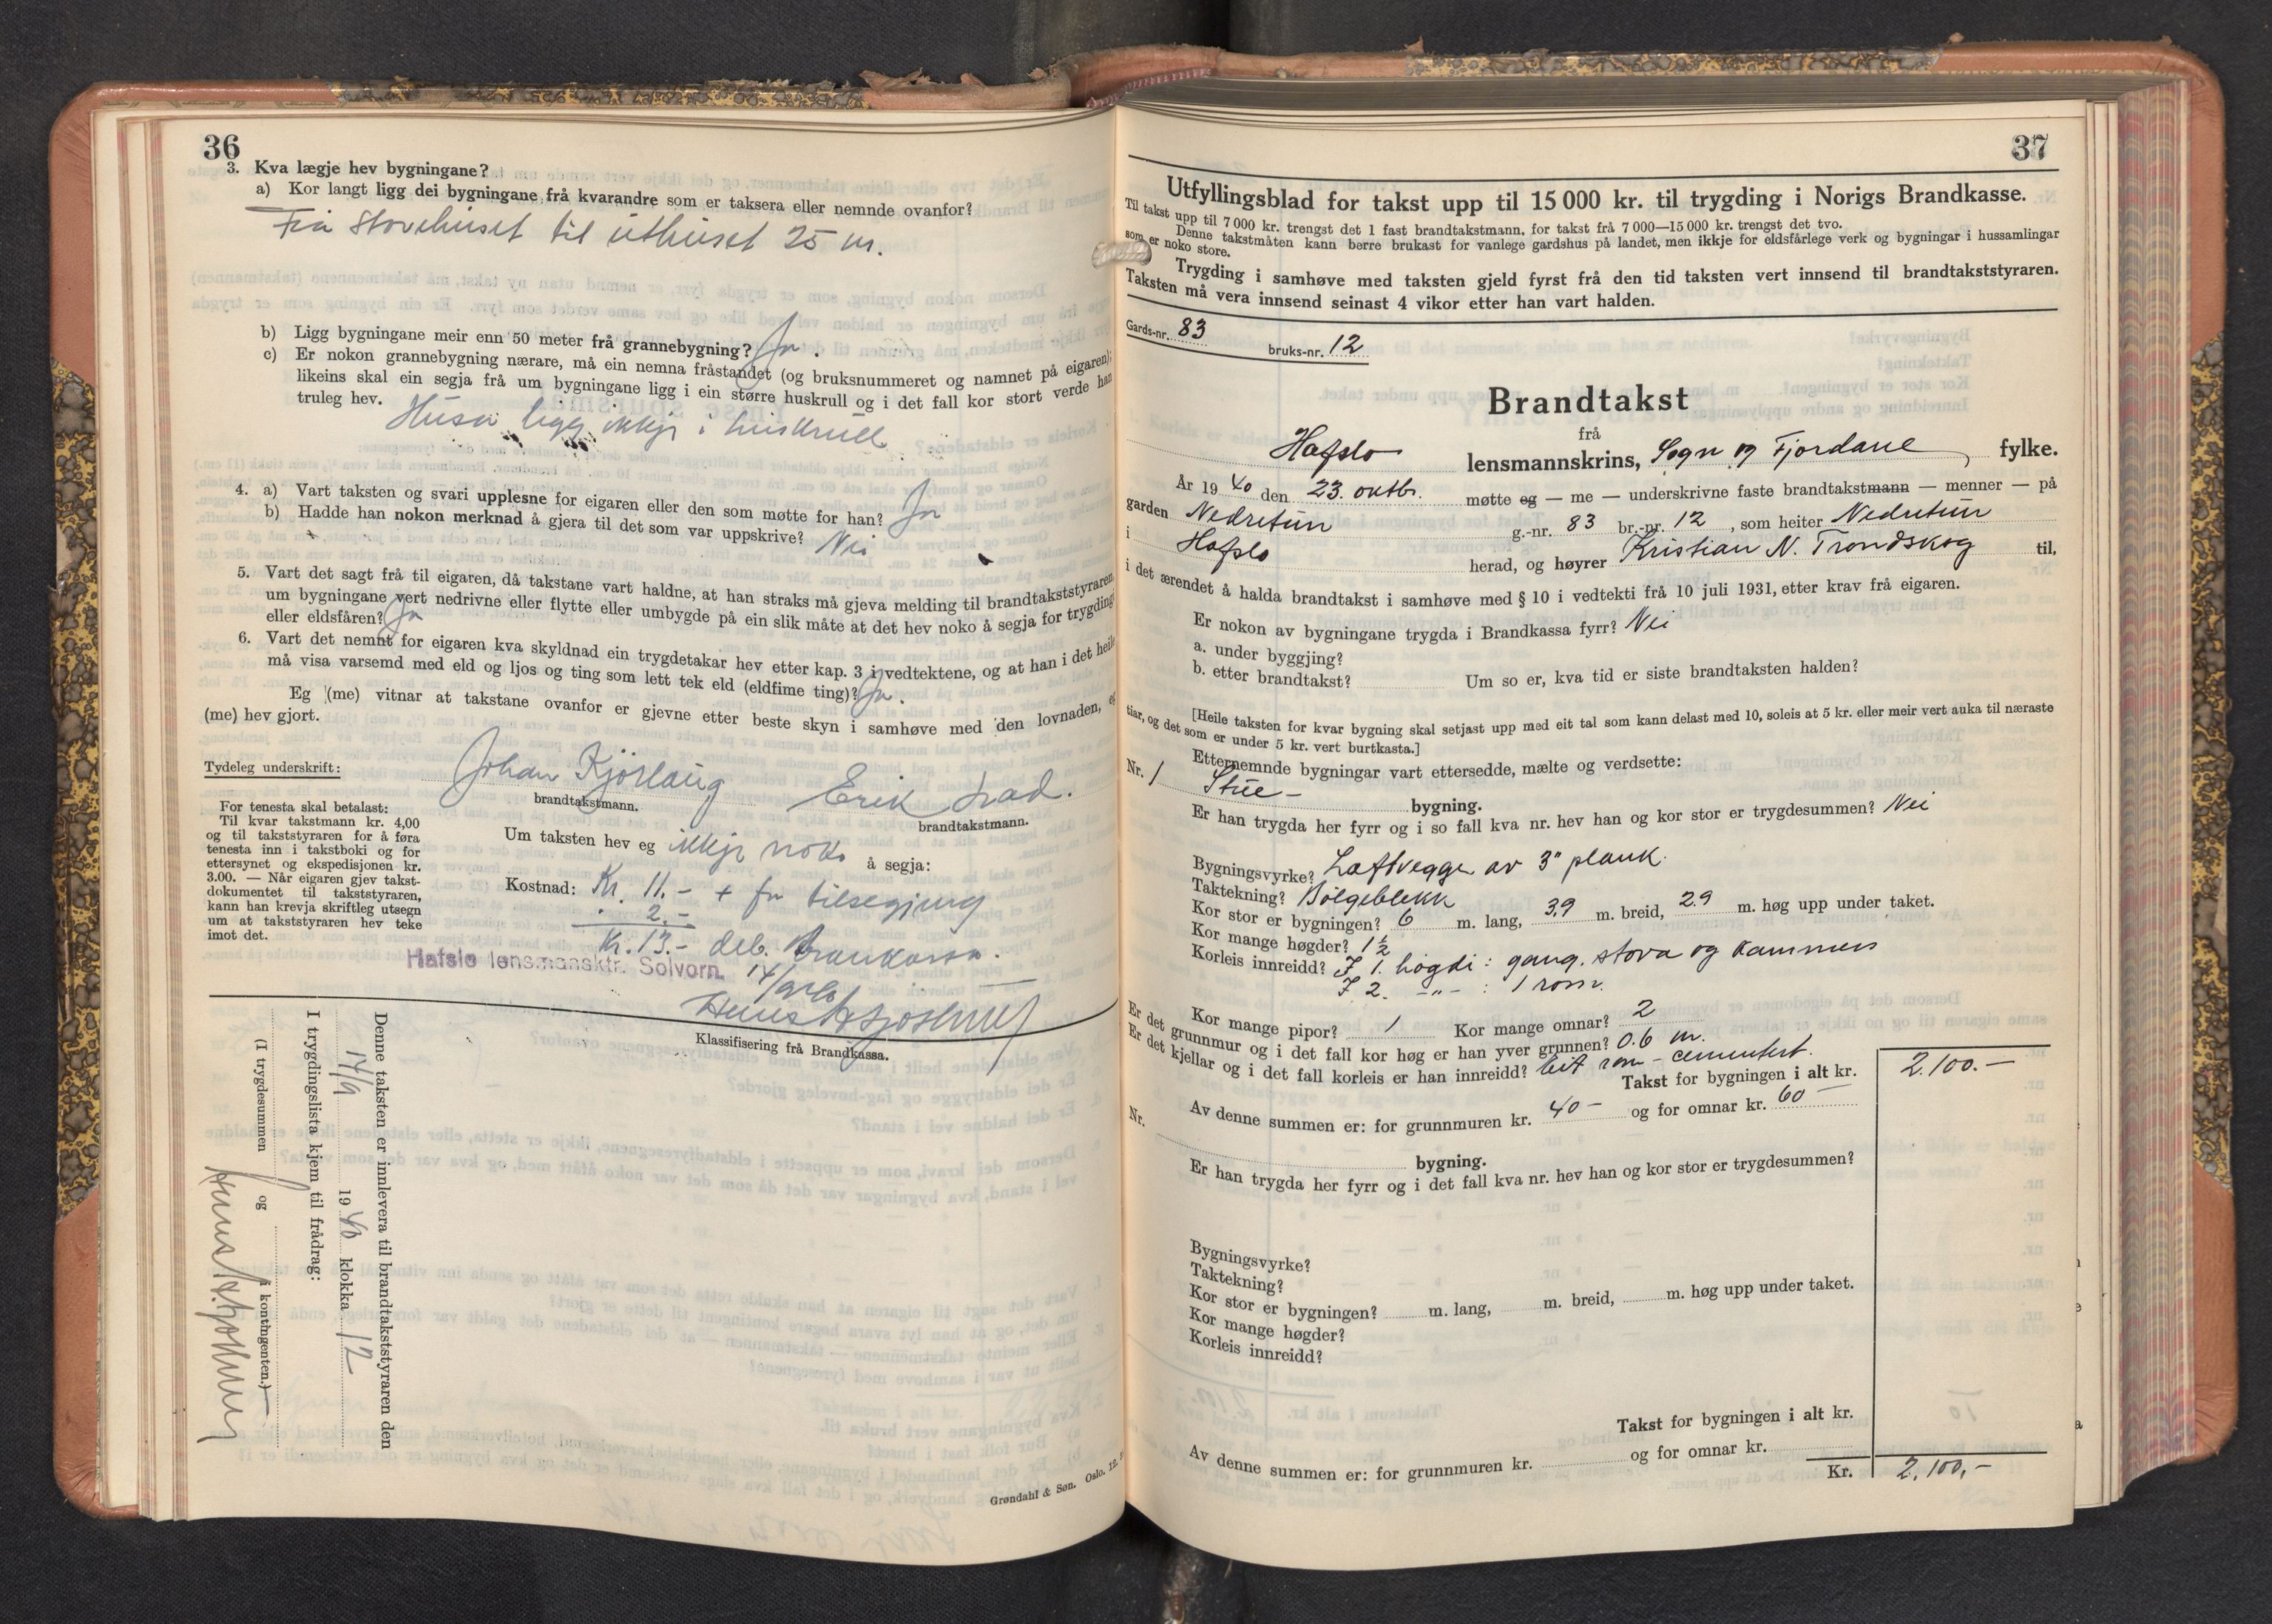 36
3. Kva lægje hev bygningane?
a) Kor langt ligg dei bygningane frå kvarandre som er taksera eller nemnde ovanfor?
Frå stovehuset til uthuset 25 m.
b) Ligg bygningane meir enn 50 meter frå grannebygning? Ja.
c) Er nokon grannebygning nærare, må ein nemna fråstandet (og bruksnummeret og namnet på eigaren);
likeins skal ein segja frå um bygningane ligg i ein større huskrull og i det fall kor stort verde han
truleg hev.
Husa ligg ikkje i huskrull
4. a) Vart taksten og svari upplesne for eigaren eller den som møtte for han? Ja
b) Hadde han nokon merknad å gjera til det som var uppskrive? Nei
5. Vart det sagt frå til eigaren, då takstane vart haldne, at han straks må gjeva melding til brandtakststyraren,
um bygningane vert nedrivne eller flytte eller umbygde på ein slik måte at det hev noko å segja for trygdingi
eller eldsfåren? Ja
6. Vart det nemnt for eigaren kva skyldnad ein trygdetakar hev etter kap. 3 i vedtektene, og at han i det heile
må visa varsemd med eld og ljos og ting som lett tek eld (eldfime ting)? Ja.
Eg (me) vitnar at takstane ovanfor er gjevne etter beste skyn i samhøve med den lovnaden, eg
(me) hev gjort.
Tydeleg underskrift:
Johan Kjørlaug Erik Lad.
brandtakstmann. brandtakstmann.
For tenesta skal betalast:
Til kvar takstmann kr. 4,00
og til takststyraren for å føra
tenesta inn i takstboki og for
ettersynet og ekspedisjonen kr.
3.00. — Når eigaren gjev takst-
dokumentet til takststyraren,
kann han krevja skriftleg utsegn
um at takststyraren hev teke
imot det.
Um taksten hev eg ikkje noko å segja:
Kostnad: Kr. 11.- + for tilsegjing
2.-
Kr. 13.- deb.
Hafslo lensmansktr. Solvorn.
Klassifisering frå Brandkassa.
Denne taksten er innlevera til brandtakststyraren den
14/9 1940 klokka 12
I trygdingslista kjem til frådrag:
(I trygdesummen og i kontingenten.)
Grøndahl & Søn. Oslo. 12.
37
Utfyllingsblad for takst upp til 15 000 kr. til trygding i Norigs Brandkasse.
Til takst upp til 7 000 kr. trengst det 1 fast brandtakstmann, for takst frå 7 000—15 000 kr. trengst det tvo.
Denne takstmåten kann berre brukast for vanlege gardshus på landet, men ikkje for eldsfårlege verk og bygningar i hussamlingar
som er noko store.
Trygding i samhøve med taksten gjeld fyrst frå den tid taksten vert innsend til brandtakststyraren.
Taksten må vera innsend seinast 4 vikor etter han vart halden.
Gards-nr. 83 bruks-nr. 12
Brandtakst
frå
Hafslo lensmannskrins, Sogn og Fjordane fylke.
År 1940 den 23. oktbr. møtte eg — me — underskrivne faste brandtakstmann — menner — på
garden Nedretun g.-nr. 83 br.-nr. 12, som heiter Nedretun
i Hafslo herad, og høyrer Kristian N. Trondskog til,
i det ærendet å halda brandtakst i samhøve med § 10 i vedtekti frå 10 juli 1931, etter krav frå eigaren.
Er nokon av bygningane trygda i Brandkassa fyrr? Nei
a. under byggjing?
b. etter brandtakst? Um so er, kva tid er siste brandtaksten halden?
[Heile taksten for kvar bygning skal setjast upp med eit tal som kann delast med 10, soleis at 5 kr. eller meir vert auka til næraste
tiar, og det som er under 5 kr. vert burtkasta.]
Etternemnde bygningar vart ettersedde, mælte og verdsette:
Nr. 1 Stue- bygning.
Er han trygda her fyrr og i so fall kva nr. hev han og kor stor er trygdesummen? Nei
Bygningsvyrke? Laftvegger av 3" plank.
Taktekning? Bølgeblekk
Kor stor er bygningen? 6 m. lang, 3.9 m. breid, 2.9 m. høg upp under taket.
Kor mange høgder? 1 1/2
Korleis innreidd? I 1. høgdi: gang, stova og kammers
I 2. -"- : 1 rom.
Kor mange pipor? 1 Kor mange omnar? 2
Er det grunnmur og i det fall kor høg er han yver grunnen? 0.6 m.
Er det kjellar og i det fall korleis er han innreidd? Eit rom - cementert.
Takst for bygningen i alt kr. 2.100.-
Av denne summen er: for grunnmuren kr. 40- og for omnar kr. 60-
Nr. bygning.
Er han trygda her fyrr og i det fall kva nr. hev han og kor stor er trygdesummen?
Bygningsvyrke?
Taktekning?
Kor stor er bygningen? m. lang, m. breid, m. høg upp under taket.
Kor mange høgder?
Korleis innreidd?
Takst for bygningen i alt kr.
Av denne summen er: for grunnmuren kr. og for omnar kr.
Kr. 2.100,-